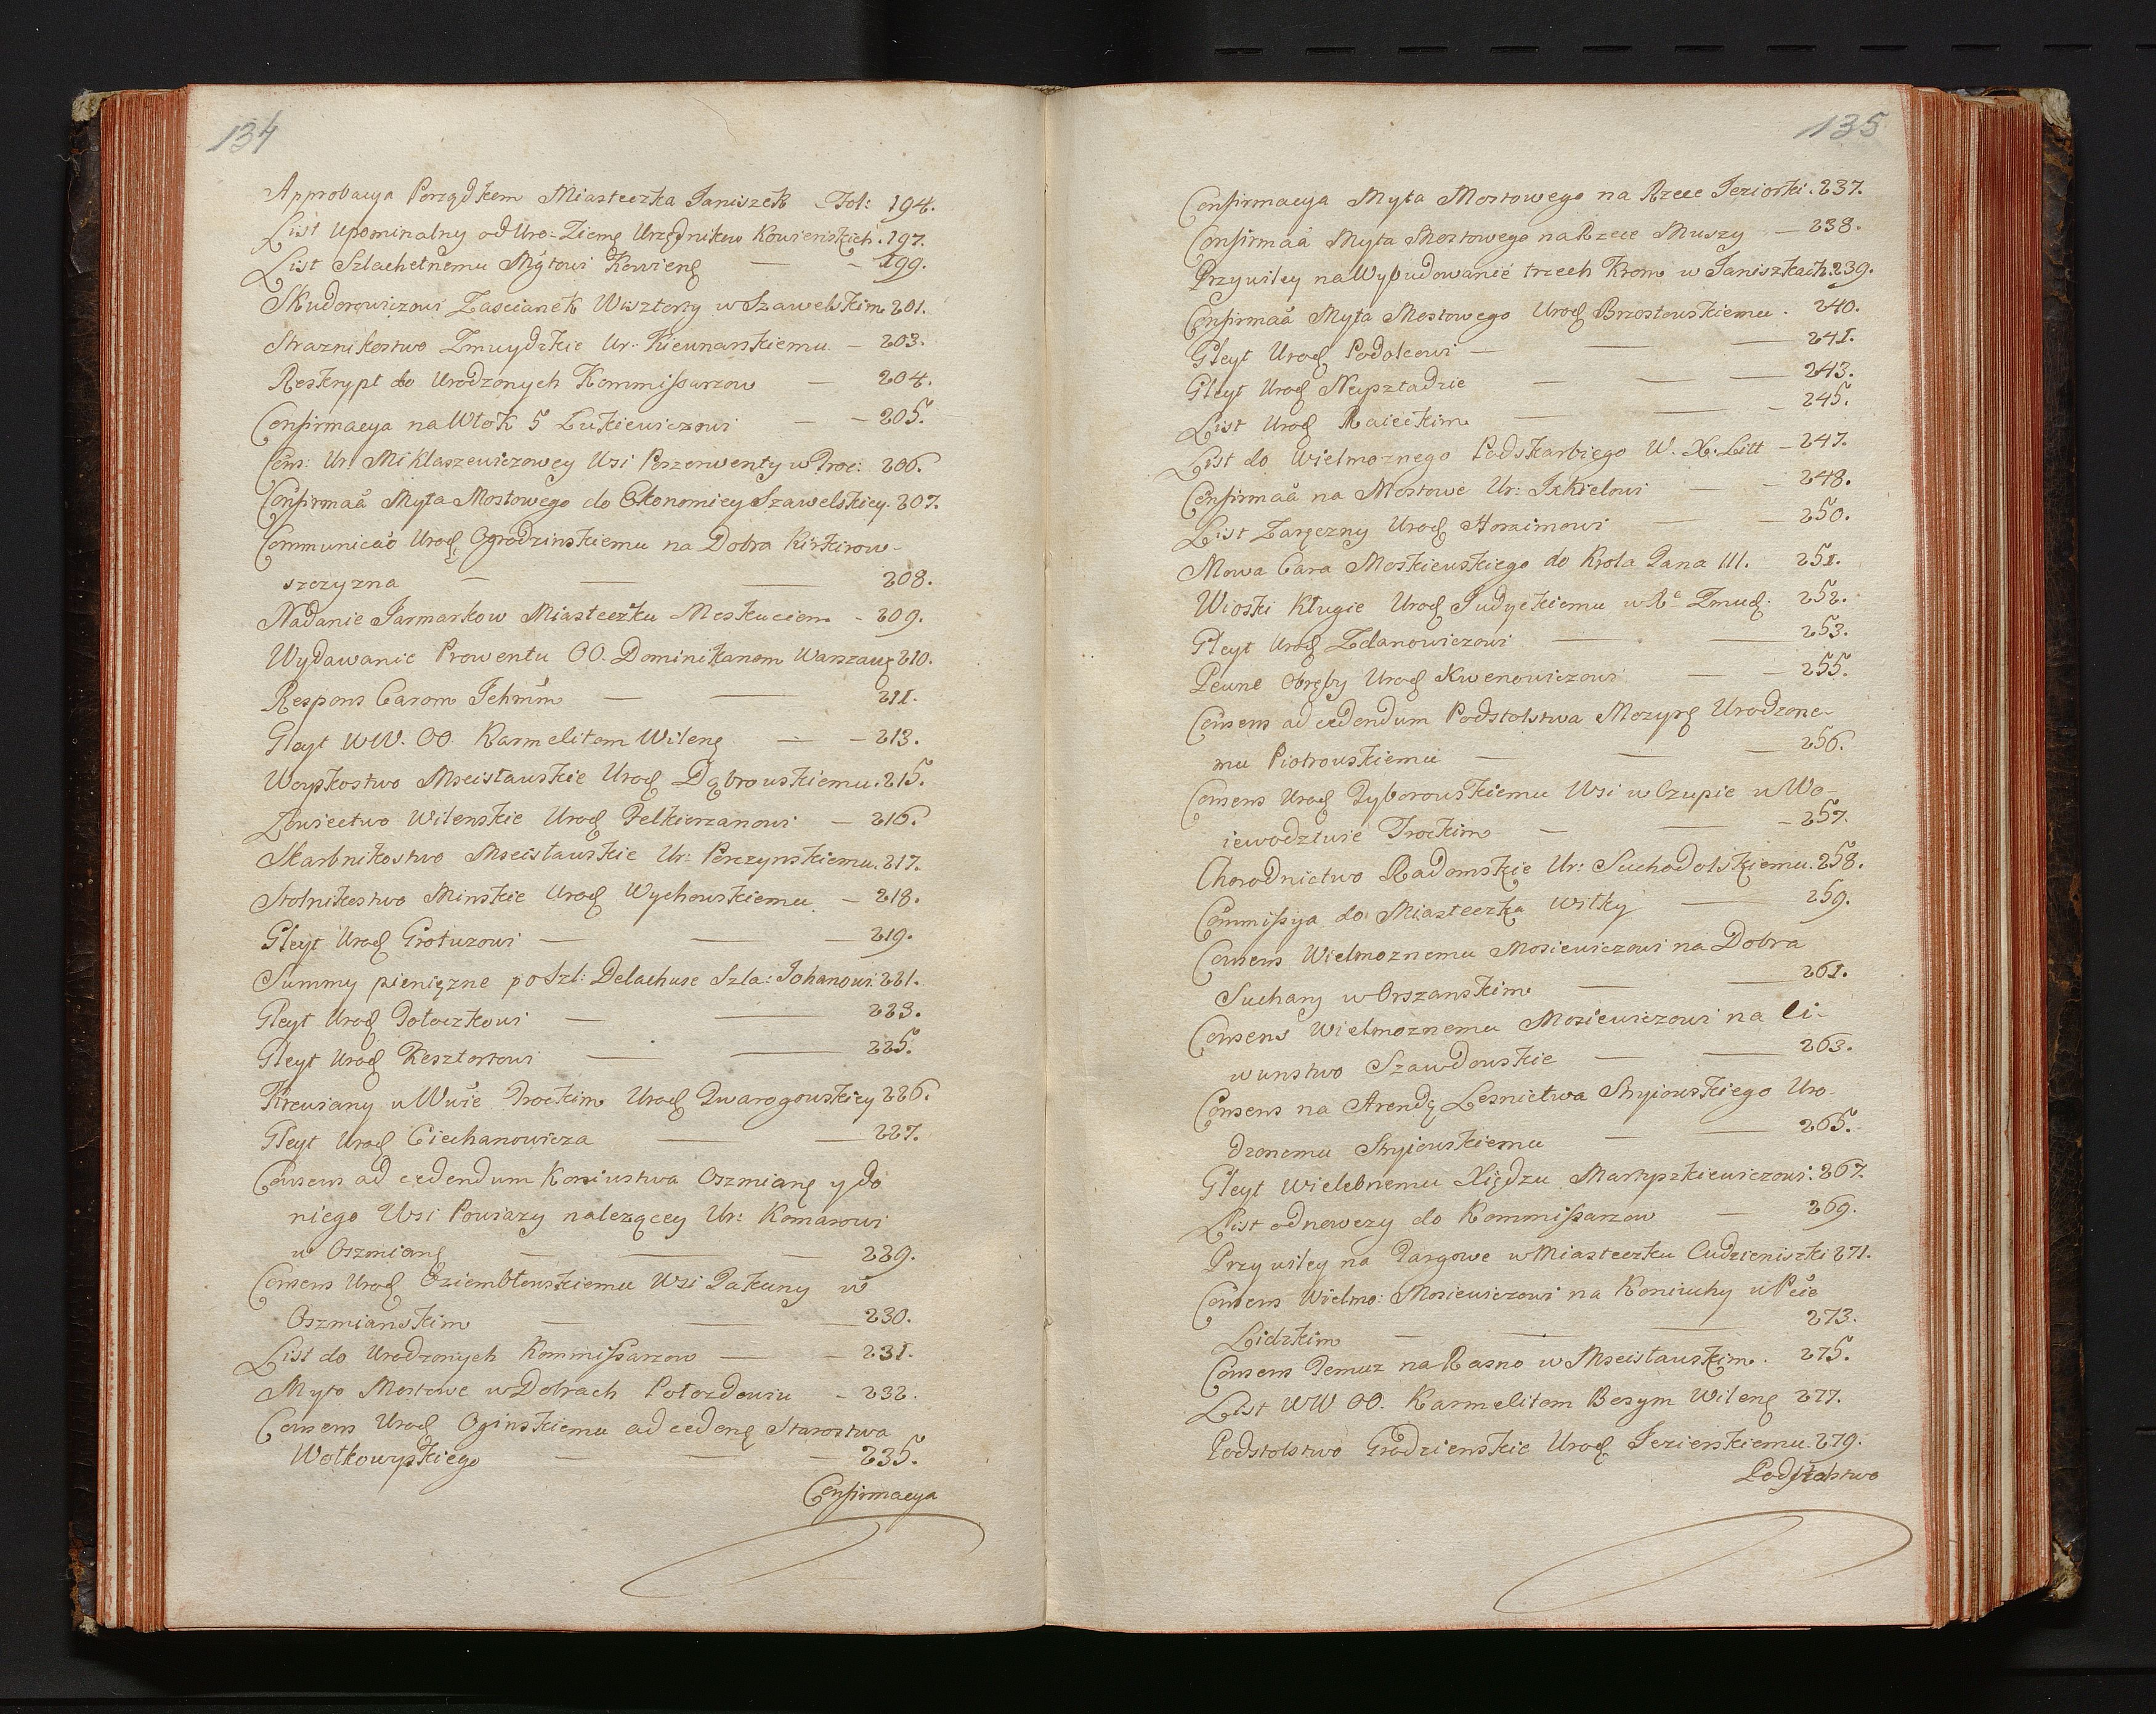 134
Approbacya Porządkem Miasteczka Janiszek Fol: 194.
List Upominalny od Uro: Ziemę Urzędnikow Kowienskich. 197.
List Szlachetnemu Mytowi Kowienę — - 199.
Skudorowiczowi Zascianek Wisztorty w Szawelskim 201.
Straznikostwo Zmuydzkie Ur: Kieunarskiemu — 203.
Reskrypt do Urodzonych Kommissarzow — 204.
Confirmacya na Wlok 5 Lukiewiczowi — - 205.
Cons: Ur: Miklaszewiczowey Wsi Poszerwenty w Troc: 206.
Confirmaã Myta Mostowego do Ekonomiey Szawelskiey. 207.
Communicaõ Urodę Ogrodzinskiemu na Dobra Kirkirow-
szczyzna — — — 208.
Nadanie Jarmarkow Miasteczku Meskuciem - 209.
Wydawanie Prowentu OO. Dominikanom Warszawę 210.
Respons Carom Jehmm — — 211.
Gleyt WW. OO. Karmelitom Wilenę — - 213.
Woyskostwo Mscisławskie Urodę Dąbrowskiemu. 215.
Łowiectwo Wilenskie Urodę Pelkierzanowi — 216.
Skarbnikostwo Mscisławskie Ur: Perczynskiemu. 217.
Stolnikostwo Minskie Urodę Wychowskiemu — 218.
Gleyt Urodę Grotuzowi — — — 219.
Summy pieniężne po Szl: Delachuse Szla: Johanowi 221.
Gleyt Urodę Tołoczkowi — — 223.
Gleyt Urodę Resztortowi — — 225.
Krewiany w Wwie Trockim Urodę Twarogowskiey 226.
Gleyt Urodę Ciechanowicza — — 227.
Consens ad cedendum Koniustwa Oszmianę y do
niego Wsi Powiazy nalezącey Ur: Komarowi
w Oszmianę — — — 229.
Consens Urodę Dziembłowskiemu Wsi Takuny w
Oszmianskim — — — 230.
List do Urodzonych Kommissarzow — - 231.
Myto Mostowe w Dobrach Połozdowiu - 232.
Consens Urodę Oginskiemu ad cedenę Starostwa
Wołkowyskiego — — — 235.
Confirmacya
135
Confirmacya Myta Mostowego na Rzece Jeziorki. 237.
Confirmaã Myta Mostowego na Rzece Muszy — 238.
Przywiley na Wybudowanie trzech Krom w Janiszkach. 239.
Confirmaã Myta Mostowego Urodę Brzostowskiemu. 240.
Gleyt Urodę Podolcowi — — — 241.
Gleyt Urodę Neysztadzie — — — 243.
List Urodę Raieckim — — - 245.
List do Wielmoznego Podskarbiego W. X. Litt — 247.
Confirmaã na Mostowe Ur: Jzkielowi — - 248.
List Zaręczny Urodę Horaimowi — - 250.
Mowa Cara Moskiewskiego do Krola Jana III. 251.
Wioski Kługie Urodę Judyckiemu w Xe Zmudę. 252.
Gleyt Urodę Zdanowiczowi — — 253.
Pewne Obręby Urodę Kwenowiczowi — - 255.
Consens ad cedendum Podstolstwa Mozyrę Urodzone-
mu Piotrowskiemu — — — 256.
Consens Urodę Zyborowskiemu Wsi w Czupie w Wo-
iewodztwie Trockim — — - 257.
Chorodnictwo Radomskie Ur: Suchodolskiemu. 258.
Commissya do Miasteczka Wilky — 259.
Consens Wielmoznemu Mosiewiczowi na Dobra
Suchary w Orszanskim — — 261.
Consens Wielmoznemu Mosiewiczowi na Ci-
wunstwo Szawdowskie — — 263.
Consens na Arendę Lesnictwa Stryiowskiego Uro-
dzonemu Stryiowskiemu — — 265.
Gleyt Wielebnemu Xiędzu Martyszkiewiczowi. 267.
List odnowczy do Kommissarzow — 269.
Przywiley na Targowe w Miasteczku Cudzieniszki 271.
Consens Wielmo: Mosiewiczowi na Koniuchy w Pcie
Lidzkim — — — 273.
Consens Temuz na Rasno w Mscisławskim. 275.
List WW OO. Karmelitom Bosym Wilenę 277.
Podstolstwo Grodzienskie Urodę Jezierskiemu. 279.
Podstolstwo